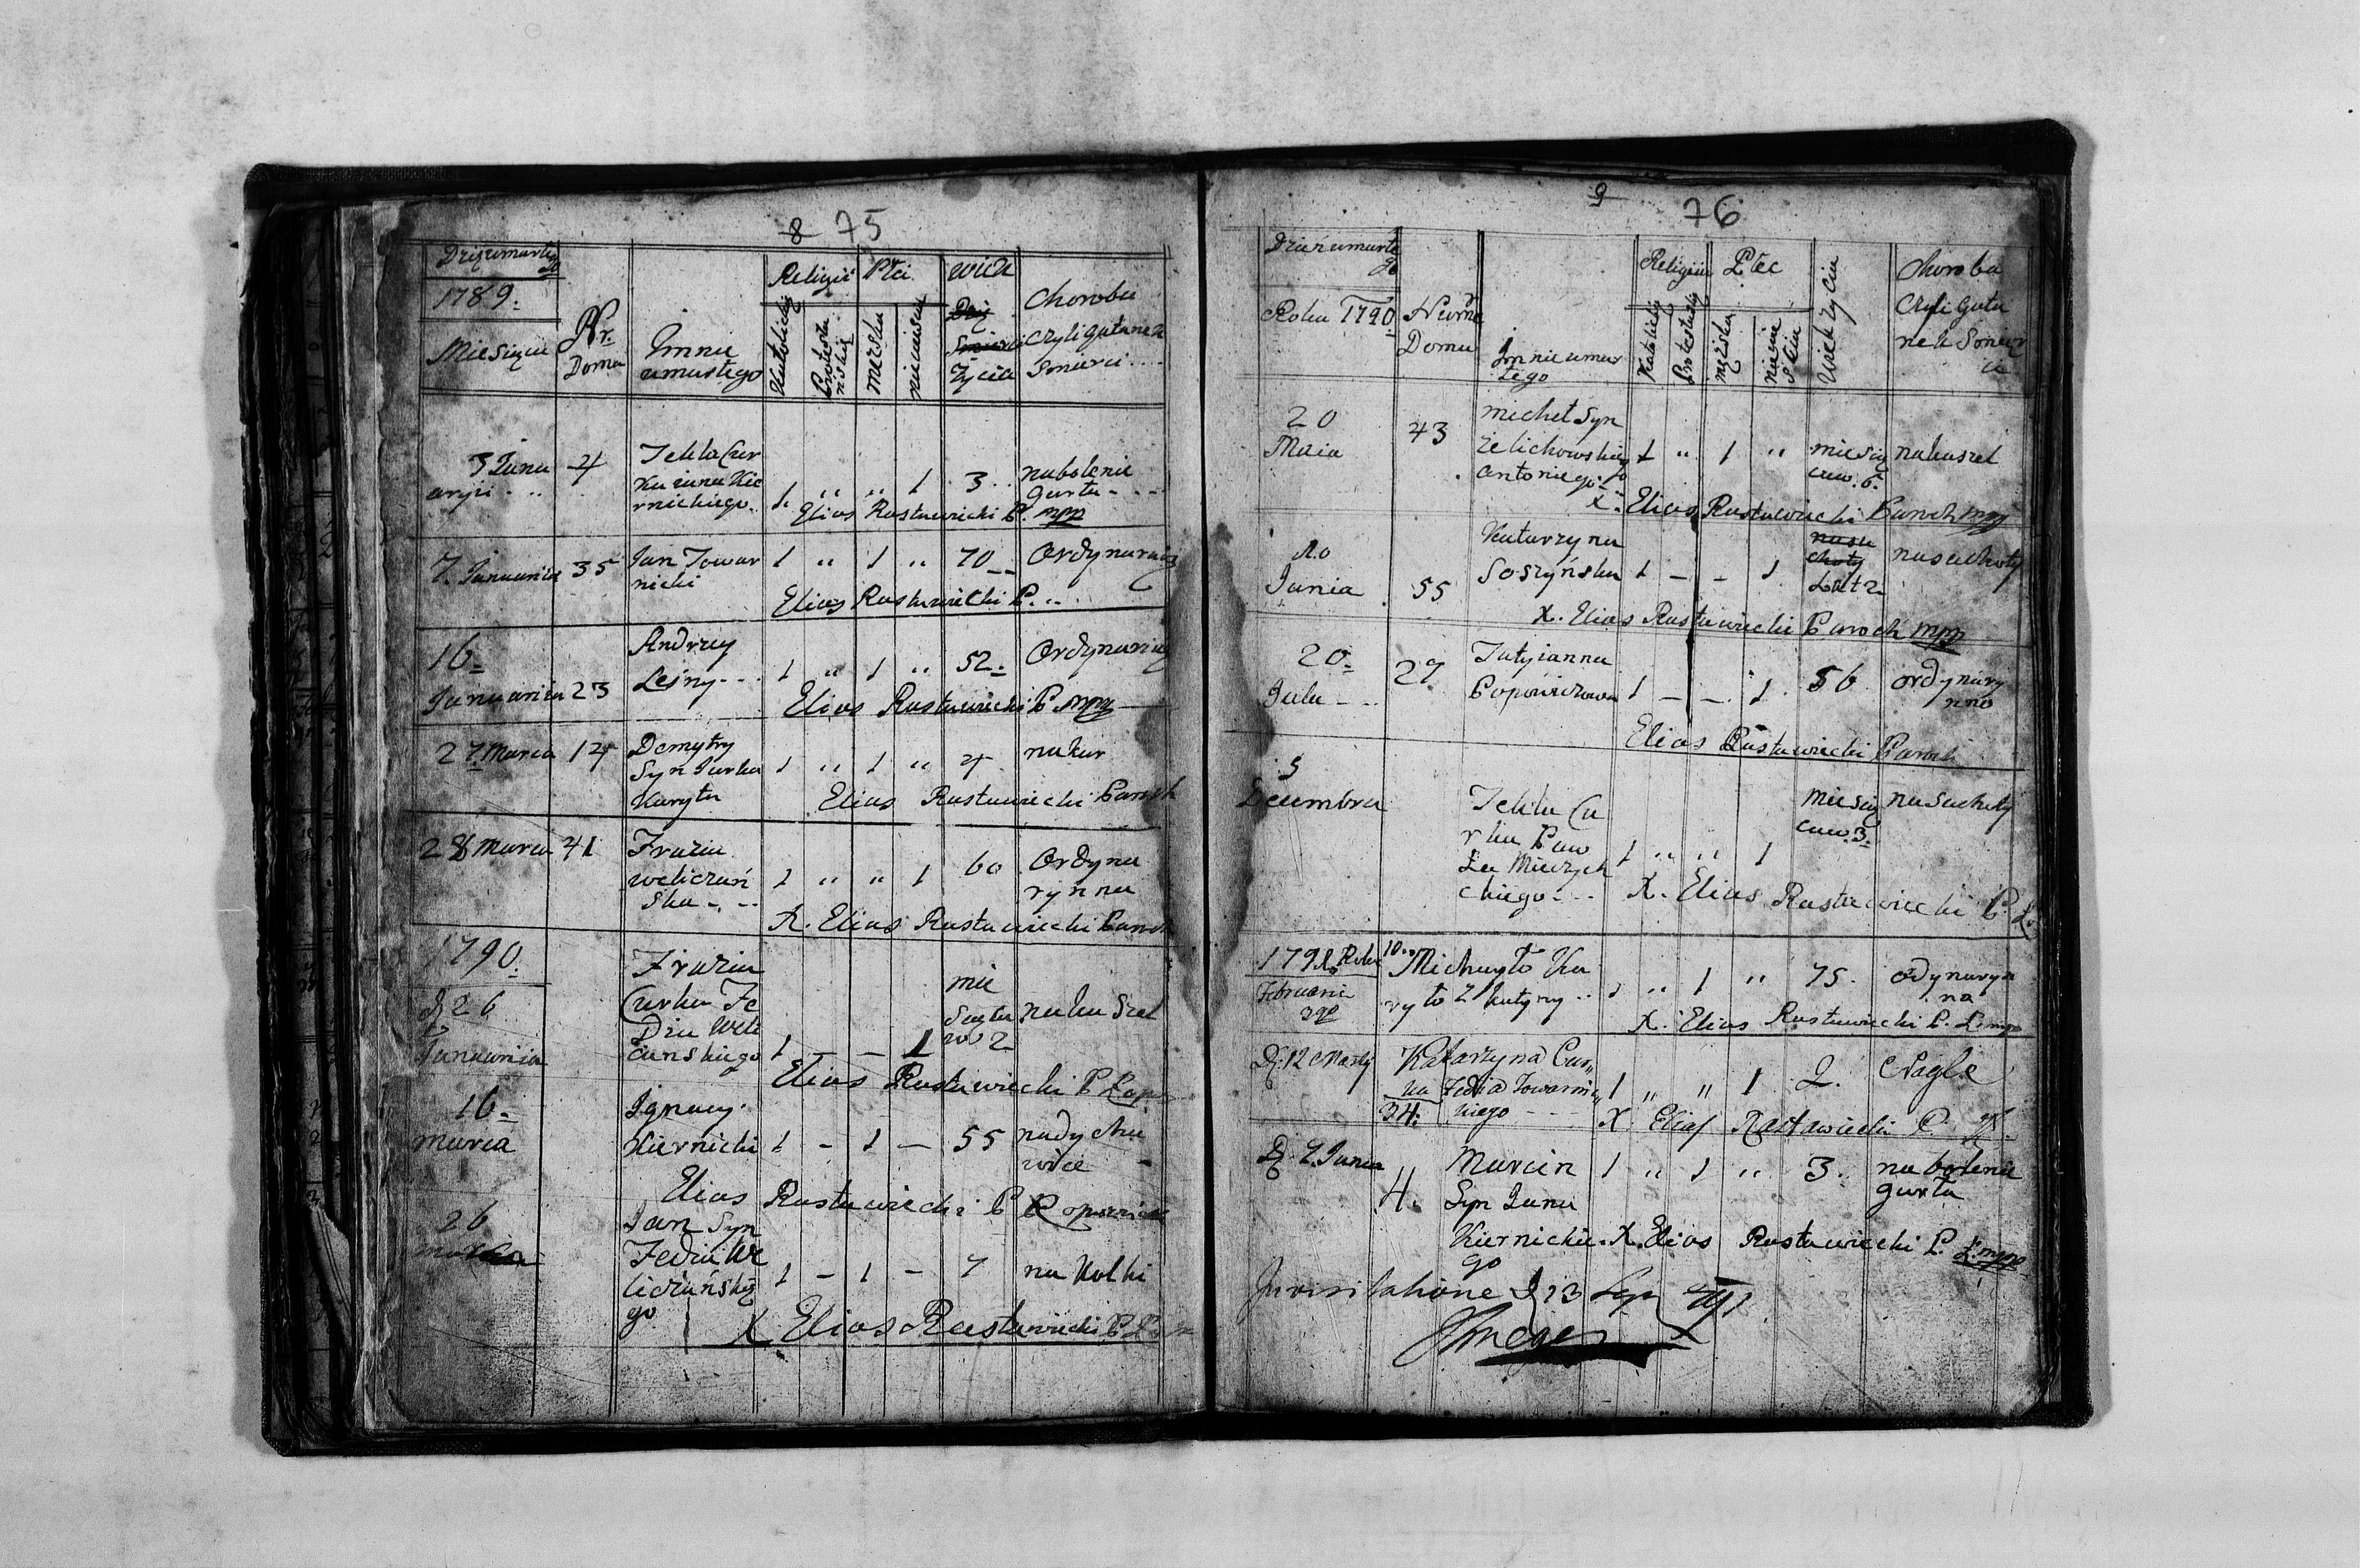 8 75
Dzięzumarłe
go
1789.
Miesiąca
Nr.
Domu
Jmnie
umarłego
Religii
Płci
wiek
Katolicki
Protesta
nskię
męzska
niewiesci
Życia
Choroba
czyli gatunek
Smierci
3 Janu
aryi
4
Tekla Cur
ka Jana Kie
rnickiego
1 " " 1 3
nabolenie
garła
Elias Rastawiecki P. mpp
7. Januaria 35 Jan Towar
nicki
1 " 1 " 70 Ordynaryią
Elias Rastawiecki P.
16
Januaria 23
Andrzey
Leśny
1 " 1 " 52 Ordynaryią
Elias Rastawiecki P mpp
27. Marca 14 Demytry
Syn Jurka
Karyta
1 " 1 " 4 nakur
Elias Rastawiecki Paroch
28 Marca 41 Fruzia
weliczań
ska
1 " " 1 60 Ordyna
rynna
X. Elias Rastawiecki Paroch
1790.
D 26
Januaria
Fruzia
Curka Fe
Dia Weli
czanskiego
1 — — 1
mie
Sięca
w 2
nakaszel
Elias Rastawiecki P
16
marca
Jgnacy
Kiernicki
1 — 1 — 55
nadycha
wice
Elias Rastawiecki P
26
Jan Syn
Fedia We
liczańskie
go
1 — 1 — 7 na Kolki
X Elias Rastawiecki P
9 76
Dzieńumarłe
go
Roku 1790
Nume
Domu
Jmnie umar
łego
Religiia
Płec
Katolicki
Protestucki
męzska
Wiek życia
Choroba
czyli Gatu
nek Smierc
i
20
Maia
43
michał Syn
Zelichowskieg
antoniego
1 " 1 "
miesię
caw. 6.
nakaszel
X. Elias Rastawiecki Paroch mpp
10
Junia
55
Katarzyna
Soszyńska
1 — — 1
nasu
choty
Lat 2
nasuchoty
X. Elias Rastawiecki Paroch mpp
20
Jula
27
Tatyianna
Popowiczowa
1 — — 1 56
ordynary
nno
Elias Rastawiecki Paroch
5
Decembra
Tekla Cu
rka Paw
ła Mierzych
ckiego
1 " " 1
miesię
caw 3.
nasuchoty
X. Elias Rastawiecki P. Ł.
1791 Roku
Februarii
10 Michayło Ka
ryto z hutyny
1 " 1 " 75. odynaryn
na
X. Elias Rastawiecki P. Ł mpp
D. 12 Marty
34.
Katarzyna Cur„
ka Fedia Towarnic„
kiego
1 " " 1 2. Nagle
X. Elias Rastawiecki P.
D. 7. Junia
4.
Marcin
Syn Jana
Kiernickie
go
1 " 1 " 3. nabolenie
garła
X. Elias Rastawiecki P. Ł. mpp
In visitatione D 13 791